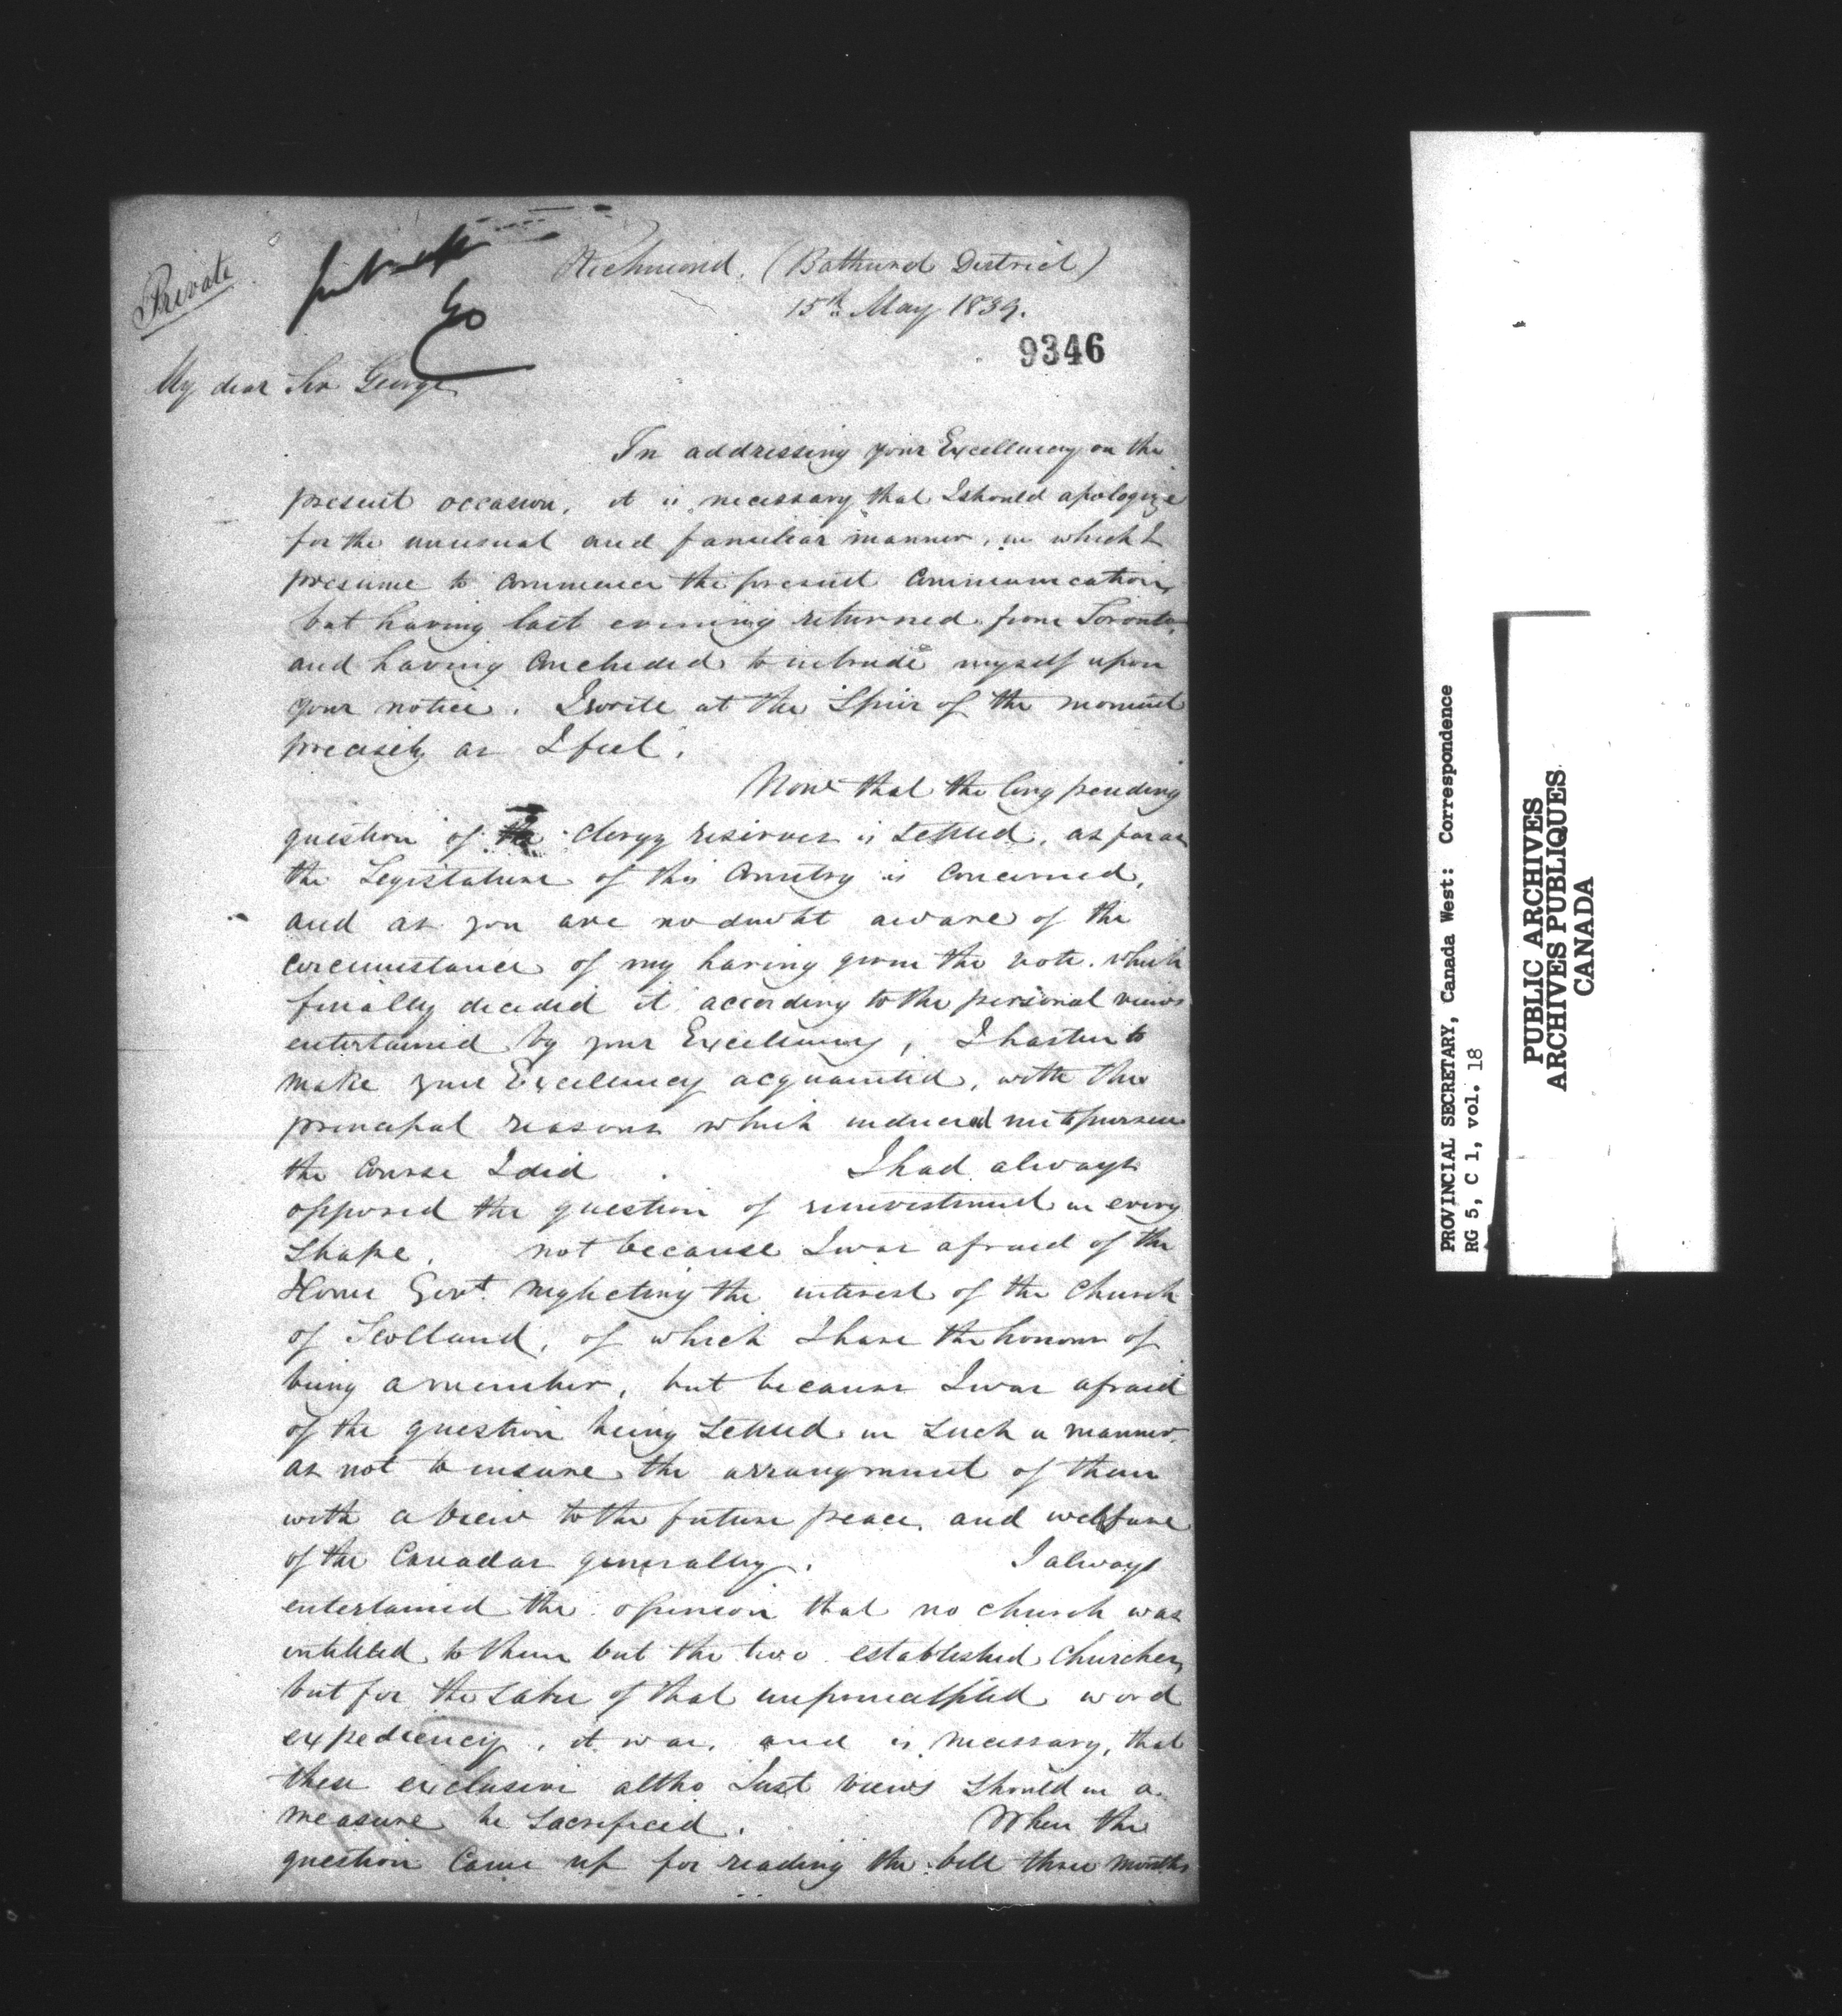 Private
put up
Richmond. (Bathurst District)
15th May 1839.
9346
My dear Sir George
In addressing your Excellency on the
present occasion, it is necessary that I should apologize
for the unusual and familiar manner, in which I
presume to commence the present communication,
but having last evening returned from Toronto,
and having concluded to intrude myself upon
your notice. I write at the spur of the moment
precisely as I feel.
Now that the long pending
question of the Clergy reserves is settled, as far as
the Legislature of this Country is concerned,
and as you are no doubt aware of the
circumstance of my having given the vote which
finally decided it according to the personal views
entertained by your Excellency, I hasten to
make your Excellency acquainted, with the
principal reasons which induced me to pursue
the course I did. I had always
opposed the question of reinvestment in every
shape, not because I was afraid of the
Home Govt. neglecting the interest of the Church
of Scotland, of which I have the honour of
being a member, but because I was afraid
of the question being settled in such a manner
as not to ensure the arrangment of them
with a view to the future peace and welfare
of the Canadas generally. I always
entertained the opinion that no church was
entitled to them but the two established Churches,
but for the sake of that unprincipled word
expediency, it was, and is necessary, that
these exclusive altho Just views should in a
measure be sacrificed. When the
question came up for reading the bill three months
PROVINCIAL SECRETARY, Canada West: Correspondence
RG 5, C 1, vol. 18
PUBLIC ARCHIVES
ARCHIVES PUBLIQUES
CANADA